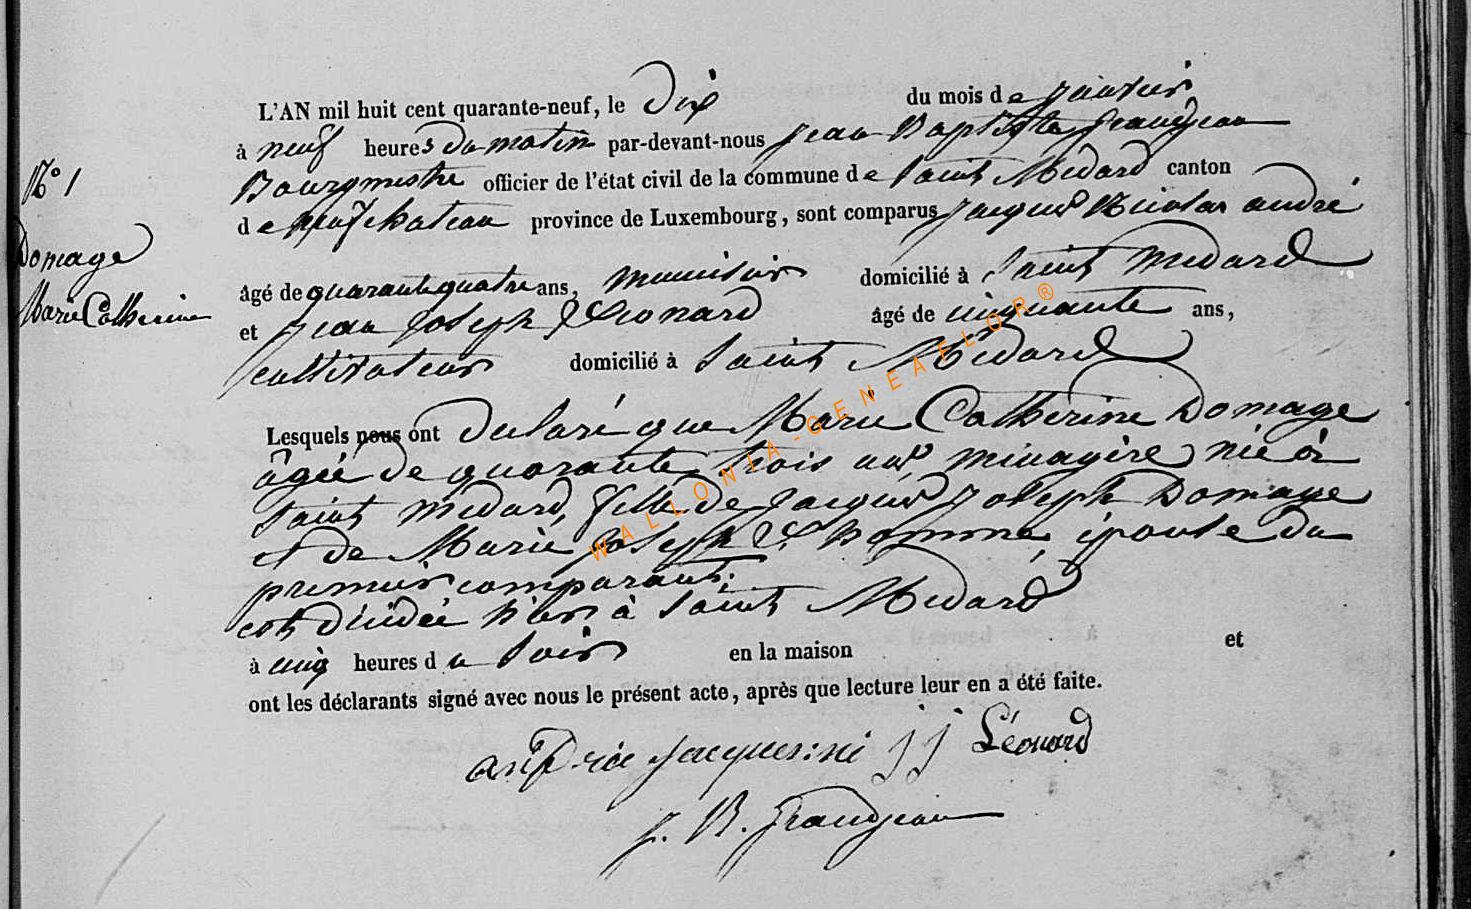 L'AN mil huit cent quarante-neuf, le Dix du mois de janvier
à neuf heures du matin par-devant-nous Jean Baptiste Grandjean
Bourgmestre officier de l'état civil de la commune de Saint Médard canton
de Neufchateau province de Luxembourg, sont comparus Jacques Nicolas André
N° 1
Domage
Marie Catherine
âgé de quarante quatre ans, menuisier domicilié à Saint Médard
et Jean Joseph Léonard âgé de cinquante ans,
cultivateur domicilié à Saint Médard
Lesquels nous ont déclaré que Marie Catherine Domage
âgée de quarante trois ans ménagère née à
Saint Médard, fille de Jacques Joseph Domage
et de Marie Joseph épouse du
premier comparant.
est décédée hier à Saint Médard
à cinq heures du soir en la maison et
ont les déclarants signé avec nous le présent acte, après que lecture leur en a été faite.
j j Léonard
J. B. Grandjean
WALLONIA-GENEAFLOR®